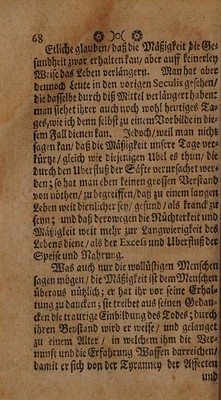 68
Etliche glauben/ daß die Mäßigkeit die Ge-
sundheit zwar erhalten kan/ aber auff keinerley
Weise das Leben verlängern. Man hat aber
dennoch Leute in den vorigen Seculis gesehen/
die dasselbe durch diß Mittel verlängert haben:
man siehet ihrer auch noch wohl heutiges Ta-
ges/ wie ich denn selbst zu einem Vorbilde in die-
sem Fall dienen kan. Jedoch/ weil man nicht
sagen kan/ daß die Mäßigkeit unsere Tage ver-
kürtze/ gleich wie diejenigen Ubel es thun/ die
durch den Uberfluß der Säfte verursachet wer-
den; so hat man eben keinen grossen Verstand
von nöthen/ zu begreiffen/ daß zu einem langen
Leben weit dienlicher sey/ gesund/ als kranck zu
seyn; und daß derowegen die Nüchterkeit und
Mäßigkeit weit mehr zur Langwierigkeit des
Lebens diene/ als der Excess und Uberfluß der
Speise und Nahrung.
Was auch nur die wollüstigen Menschen
sagen mögen/ die Mäßigkeit ist dem Menschen
überaus nützlich; er hat ihr vor seine Erhal-
tung zu dancken; sie treibet aus seinen Gedan-
cken die traurige Einbildung des Todes; durch
ihren Beystand wird er weise/ und gelanget
zu einem Alter/ in welchem ihm die Ver-
nunft und die Erfahrung Waffen darreichen/
damit er sich von der Tyranney der Affecten
und